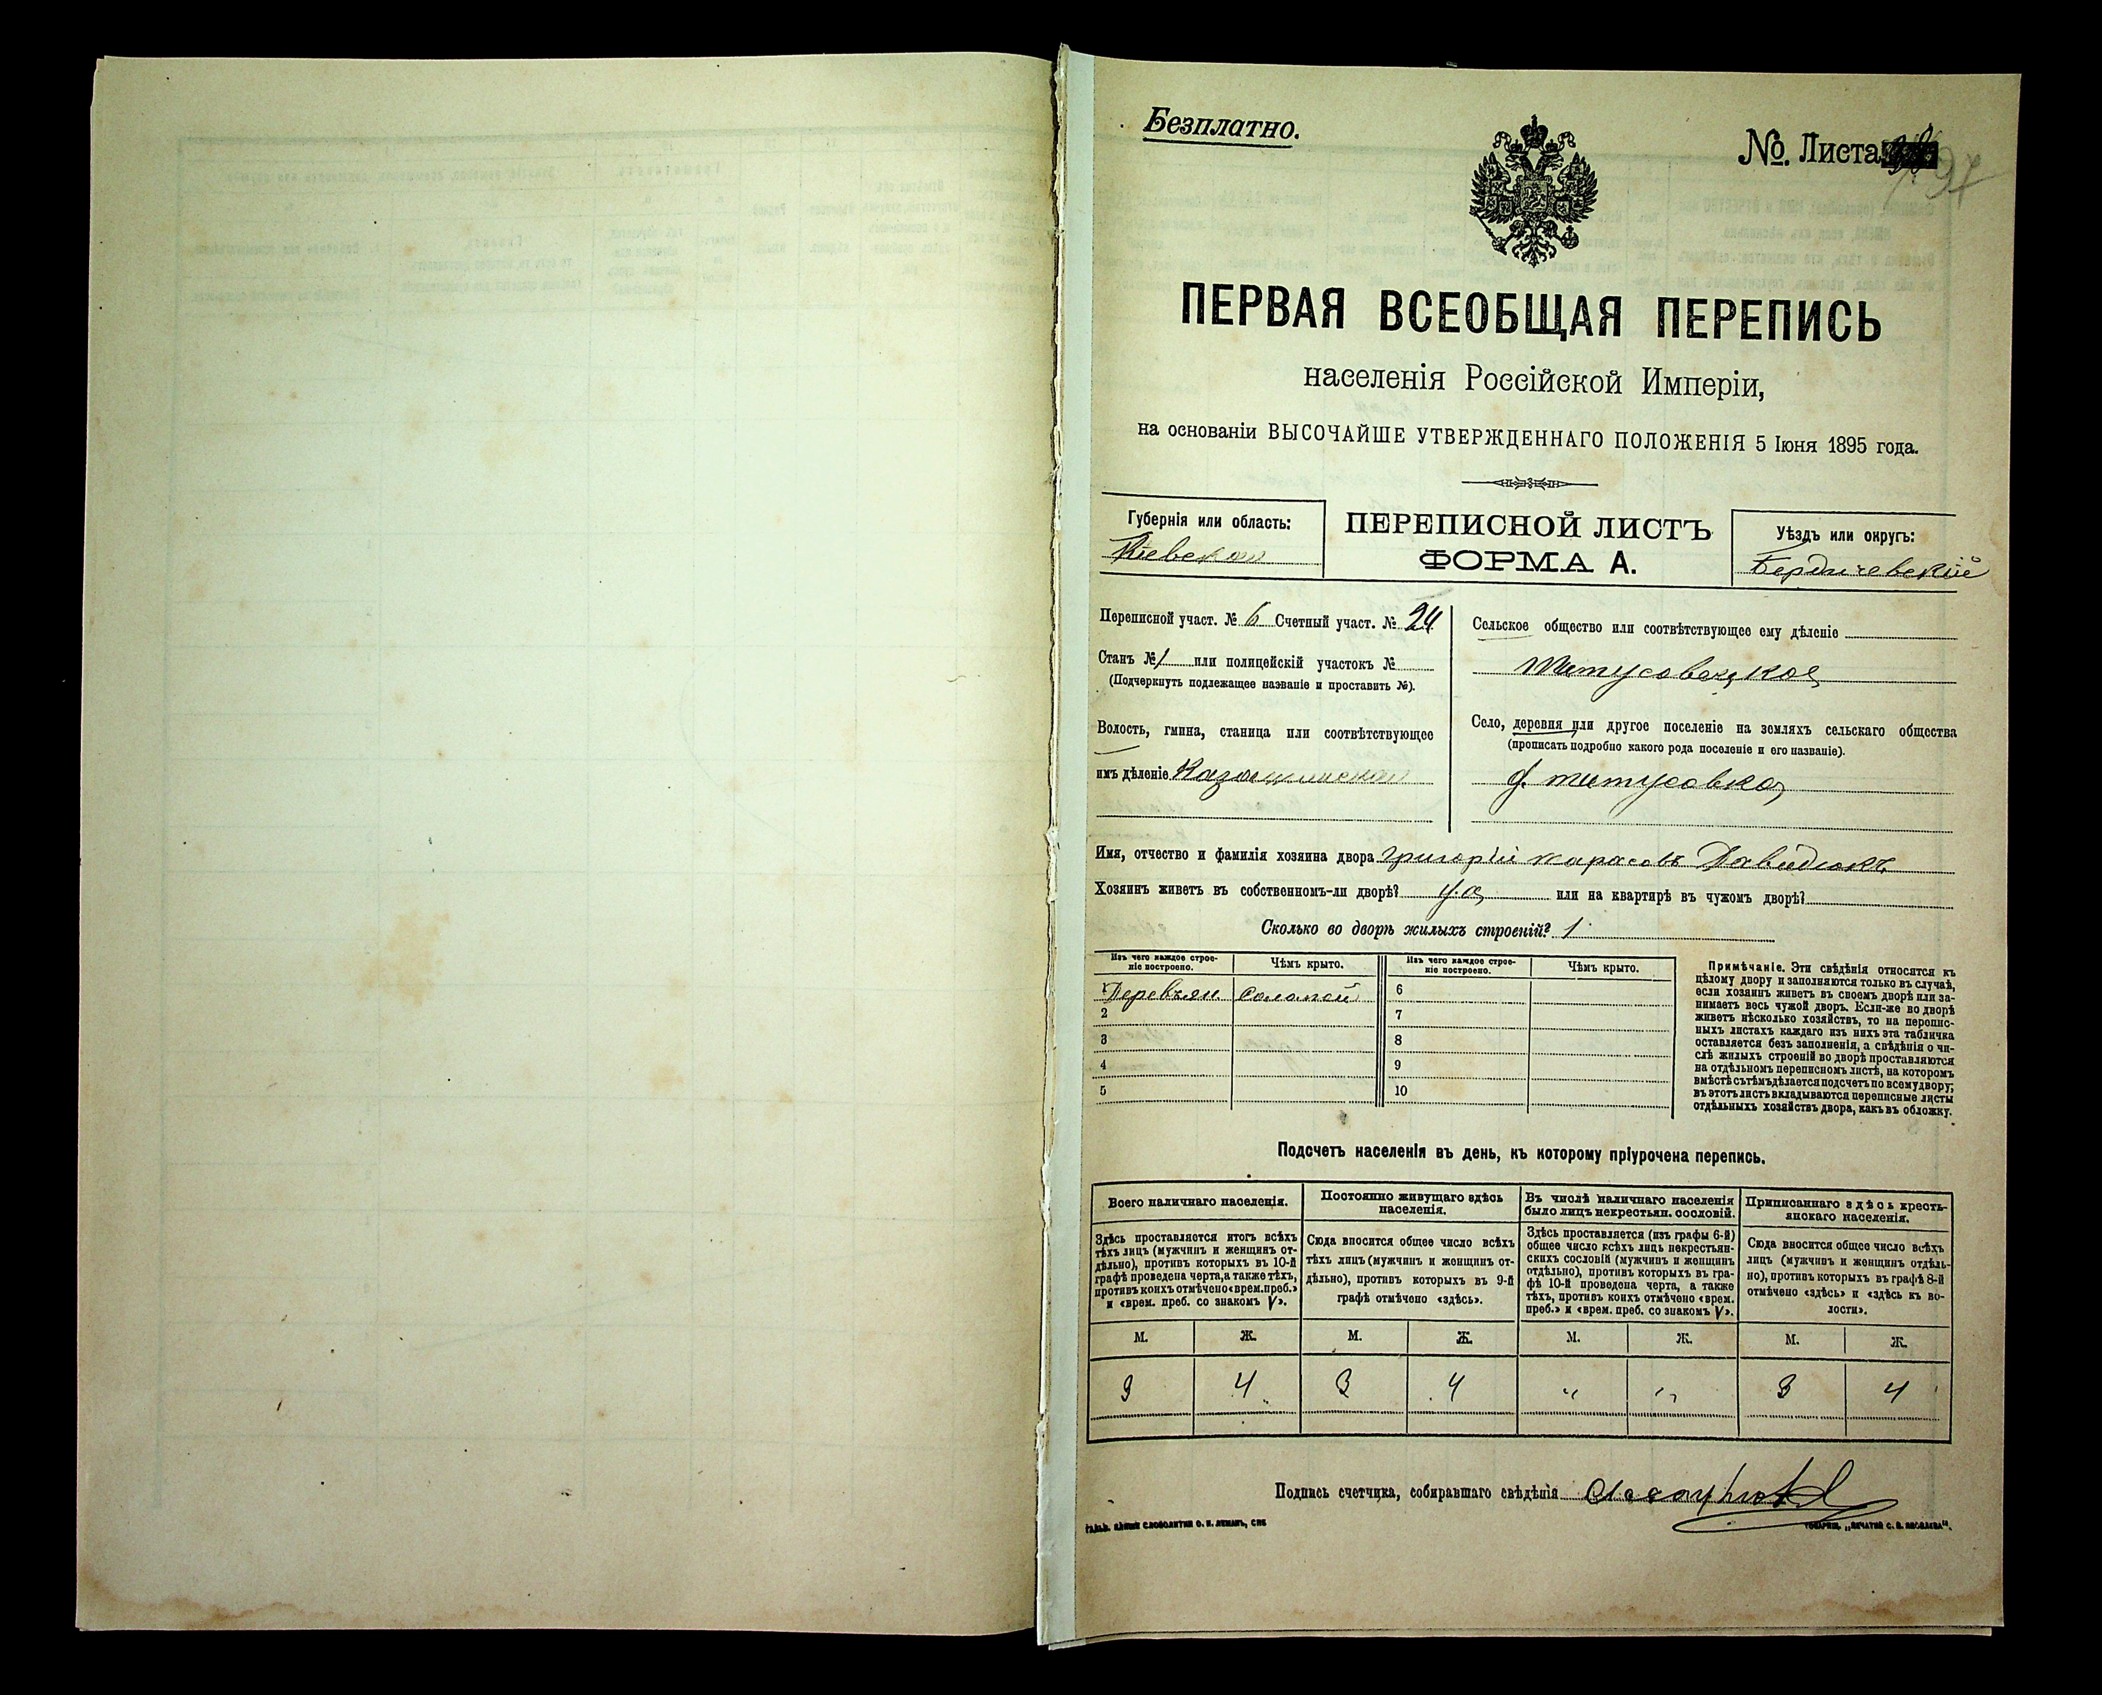 Безплатно.
№ Листа 38
97
ПЕРВАЯ ВСЕОБЩАЯ ПЕРЕПИСЬ
населенія Россійской Имперіи,
на основаніи ВЫСОЧАЙШЕ УТВЕРЖДЕННАГО ПОЛОЖЕНІЯ 5 Іюня 1895 года.
Губернія или область:
Кіевская
ПЕРЕПИСНОЙ ЛИСТЪ
ФОРМА А.
Уѣздъ или округъ:
Бердичевскій
Переписной участ. № 6 Счетный участ. № 24
Станъ № 1 или полицейскій участокъ №
(Подчеркнуть подлежащее названіе и проставить №).
Волость, гмина, станица или соотвѣтствующее
имъ дѣленіе
Сельское общество или соотвѣтствующее ему дѣленіе
Титусовецкое
Село, деревня или другое поселеніе на земляхъ сельскаго общества
(прописать подробно какого рода поселеніе и его названіе).
д. Титусовка
Имя, отчество и фамилія хозяина двора Григорій Тарасовъ Давидюкъ
Хозяинъ живетъ въ собственномъ-ли дворѣ? да или на квартирѣ въ чужомъ дворѣ?
Сколько во дворѣ жилыхъ строеній? 1
Изъ чего каждое строе-
ніе построено.
Чѣмъ крыто.
Изъ чего каждое строе-
ніе построено.
Чѣмъ крыто.
1 Деревян. Соломой 6
2 7
3 8
4 9
5 10
Примѣчаніе. Эти свѣдѣнія относятся къ
цѣлому двору и заполняются только въ случаѣ,
если хозяинъ живетъ въ своемъ дворѣ или за-
нимаетъ весь чужой дворъ. Если-же во дворѣ
живетъ нѣсколько хозяйствъ, то на перепис-
ныхъ листахъ каждаго изъ нихъ эта табличка
оставляется безъ заполненія, а свѣдѣнія о чи-
слѣ жилыхъ строеній во дворѣ проставляются
на отдѣльномъ переписномъ листѣ, на которомъ
вмѣстѣ съ тѣмъ дѣлается подсчетъ по всему двору;
въ этотъ листъ вкладываются переписные листы
отдѣльныхъ хозяйствъ двора, какъ въ обложку.
Подсчетъ населенія въ день, къ которому пріурочена перепись.
Всего наличнаго населенія.
Здѣсь проставляется итогъ всѣхъ
тѣхъ лицъ (мужчинъ и женщинъ от-
дѣльно), противъ которыхъ въ 10-й
графѣ проведена черта, а также тѣхъ,
противъ коихъ отмѣчено «врем. преб.»
и «врем. преб. со знакомъ V».
Постоянно живущаго здѣсь
населенія.
Сюда вносится общее число всѣхъ
тѣхъ лицъ (мужчинъ и женщинъ от-
дѣльно), противъ которыхъ въ 9-й
графѣ отмѣчено «здѣсь».
Въ числѣ наличнаго населенія
было лицъ некрестьян. сословій.
Здѣсь проставляется (изъ графы 6-й)
общее число всѣхъ лицъ некрестьян-
скихъ сословій (мужчинъ и женщинъ
отдѣльно), противъ которыхъ въ гра-
фѣ 10-й проведена черта, а также
тѣхъ, противъ коихъ отмѣчено «врем.
преб.» и «врем. преб. со знакомъ V».
Приписаннаго здѣсь кресть-
янскаго населенія.
Сюда вносится общее число всѣхъ
лицъ (мужчинъ и женщинъ отдѣль-
но), противъ которыхъ въ графѣ 8-й
отмѣчено «здѣсь» и «здѣсь къ во-
лости».
М. Ж. М. Ж. М. Ж. М. Ж.
3 4 3 4 " " 3 4
Подпись счетчика, собиравшаго свѣдѣнія